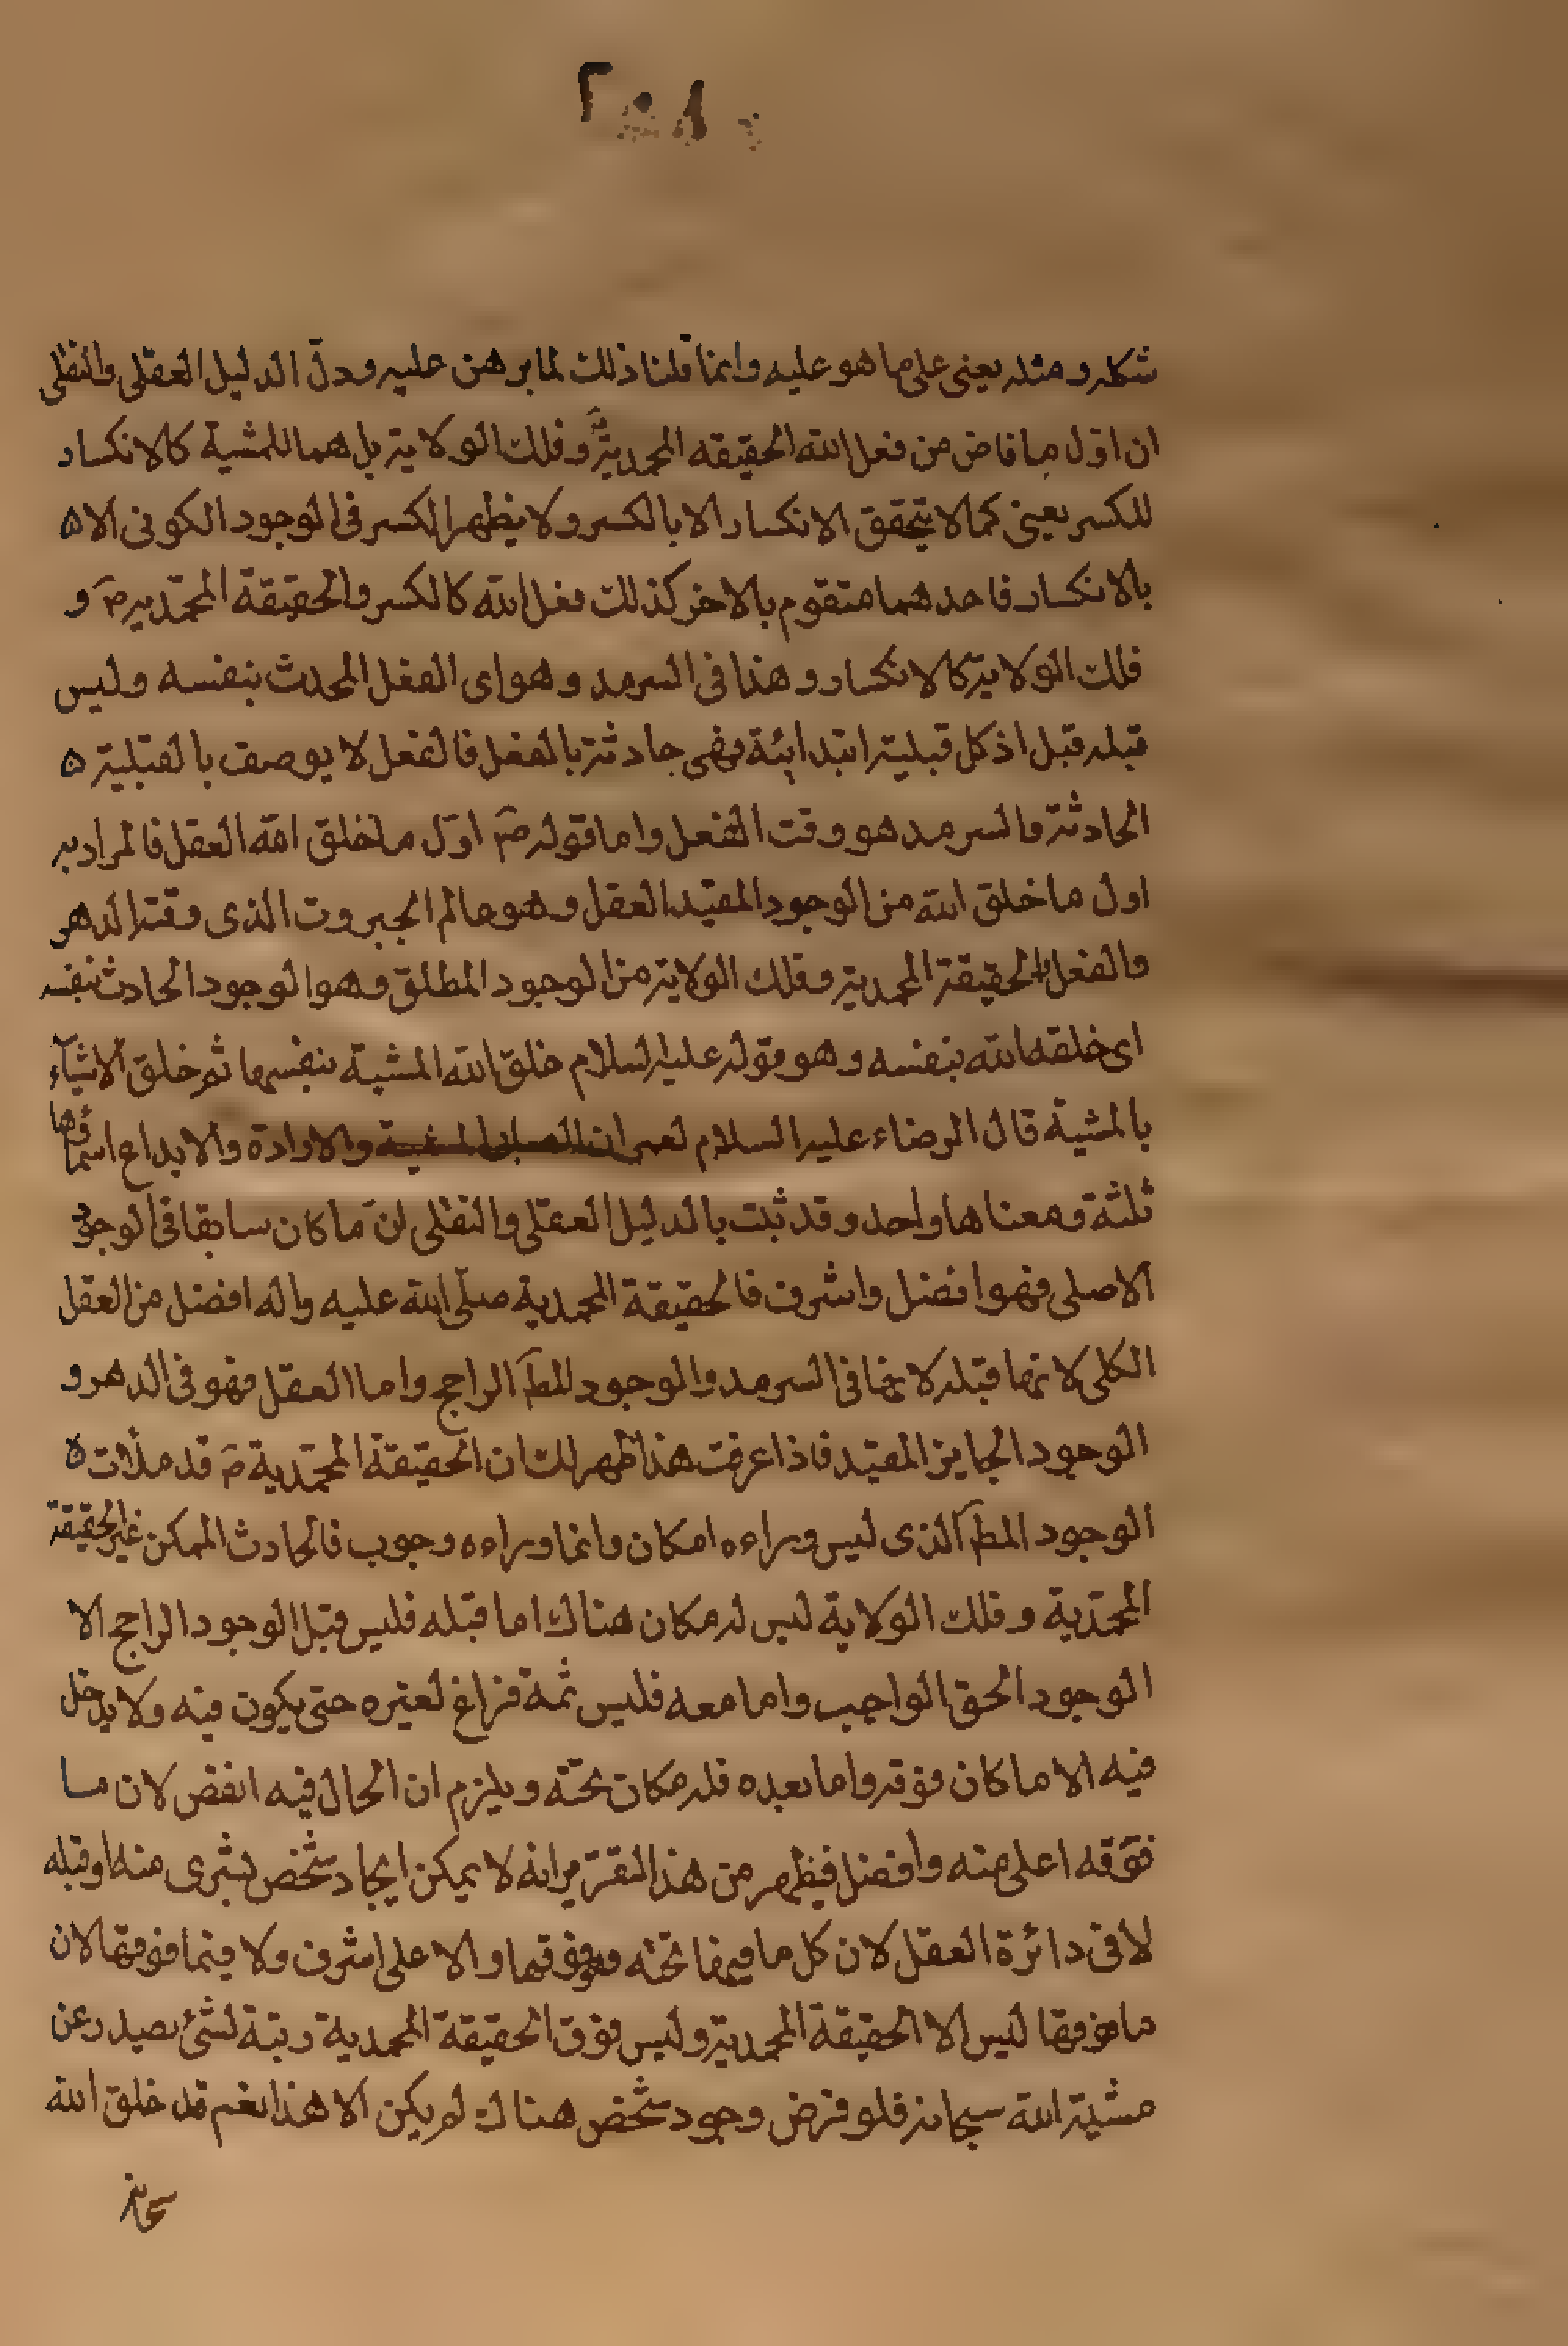 شكله ومثله يعنى على ما هو عليه وانما قلنا ذلك لما برهن عليه ودلّ الدليل العقلى والنقلى
ان اوّل ما فاض من فعل الله الحقيقه المحمديةّ وفلك الولاية بل هما للمشية كالانكسار
للكسر يعنى كما لا يتحقق الانكسار الا بالكسر ولا يظهر الكسر فى الوجود الكونى الا ۵
بالانكسار فاحدهما متقوم بالاخر كذلك فعل الله كالكسر والحقيقة المحمّدية صۤ و
فلك الولاية كالانكسار وهذا فى السرمد وهو اى الفعل المحدث بنفسه وليس
قبله قبل اذ كل قبلية ابتدائية فهى حادثة بالفعل فالفعل لا يوصف بالقبلية ۵
الحادثة والسرمد هو وقت الفعل واما قوله صۤ اوّل ما خلق الله العقل فالمراد به
اول ما خلق الله من الوجود المقيّد العقل وهو عالم الجبروت الذى وقته الدهر
والفعل والحقيقة المحمدية وفلك الولاية من الوجود المطلق وهو الوجود الحادث بنفسه
اى خلقه الله بنفسه وهو قوله عليه السلام خلق الله المشية بنفسها ثم خلق الاشيآء
بالمشية قال الرضاء عليه السلام لعمران الصابى المشية والارادة والابداع اسمآؤها
ثلثة ومعناها واحد وقد ثبت بالدليل العقلى والنقلى انّ ما كان سابقا فى الوجود
الاصلى فهو افضل واشرف فالحقيقة المحمدية صلّى الله عليه واله افضل من العقل
الكلى لانها قبله لانها فى السرمد والوجود المطۤ الراجح واما العقل فهو فى الدهر و
الوجود الجايز المقيّد فاذا عرفت هذا ظهر لك ان الحقيقة المحمّدية صۤ قد ملأت ۵
الوجود المطۤ الذى ليس وراءه امكان وانما وراءه وجوب فالحادث الممكن غير الحقيقة
المحمّدية وفلك الولاية ليس له مكان هناك اما قبله فليس قبل الوجود الراجح الا
الوجود الحق الواجب واما معه فليس ثمة فراغ لغيره حتى يكون فيه ولا يدخل
فيه الا ما كان فوقه واما بعده فله مكان تحته ويلزم ان الحال فيه انقص لان ما
فوقه اعلى منه وافضل فيظهر من هذا التقرير انه لا يمكن ايجاد شخص بشرى منه او قبله
لا فى دائرة العقل لان كل ما فيها تحته وهو فوقها والاعلى اشرف ولا فيما فوقها لان
ما فوقها ليس الا الحقيقة المحمدية وليس فوق الحقيقة المحمدية رتبة لشئ يصدر عن
مشية الله سبحانه فلو فرض وجود شخص هناك لم يكن الا هذا نعم قد خلق الله
سبحانه